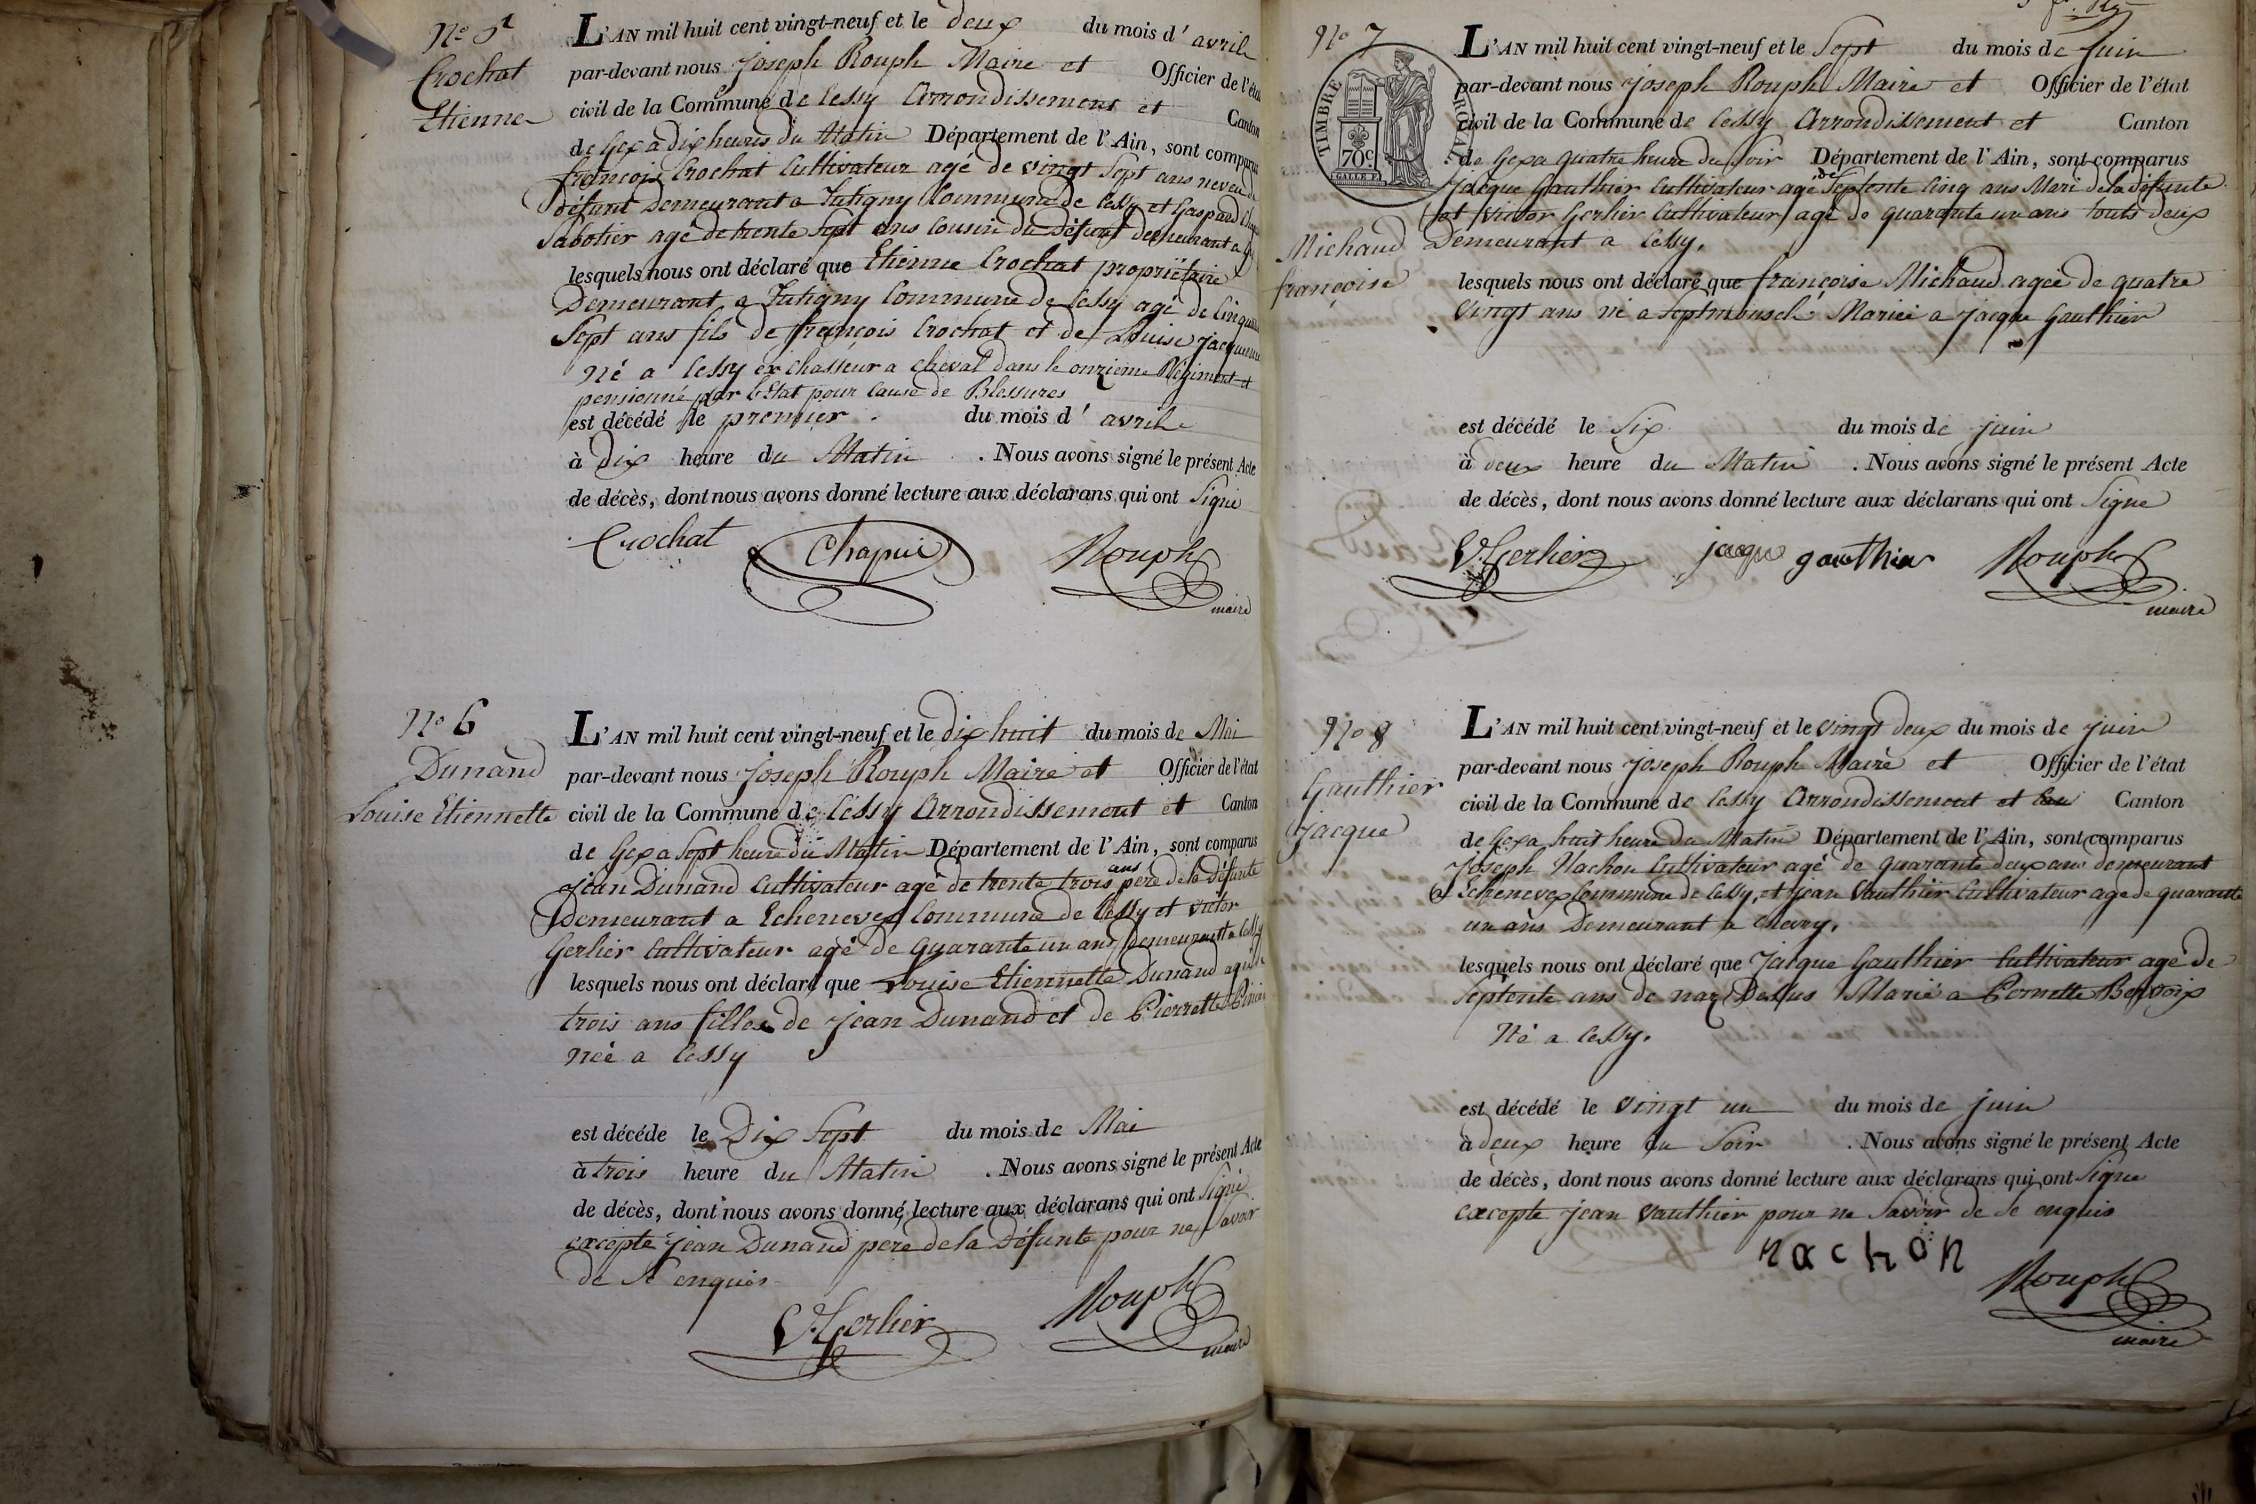 No 5
Crochat
Etienne
L'AN mil huit cent vingt-neuf et le deux du mois d' avril
par-devant nous Joseph Rouph Maire et Officier de l'état
civil de la Commune de Cessy Arrondissement et Canton
de Gex a dix heures du Matin Département de l'Ain, sont comparus
françois Crochat Cultivateur agé de vingt Sept ans neveu du
défunt Demeurant a Tutigny Commune de Cessy et Gaspard
Sabotier agé de trente Sept ans Cousin du Défunt demeurant a
lesquels nous ont déclaré que Etienne Crochat propriétaire
Demeurant a Tutigny Commune de Cessy agé de Cinquante
Sept ans fils de françois Crochat et de Louise
Né a Cessy ex Chasseur a Cheval dans le onzieme Régiment et
pensionné par l'Etat pour Cause de Blessures
est décédé le premier du mois d' avril
à Dix heure du Matin . Nous avons signé le présent Acte
de décès, dont nous avons donné lecture aux déclarans qui ont Signé
Crochat Chapui Rouph
maire
No 6
Dunand
Louise Etiennette
L'AN mil huit cent vingt-neuf et le dix huit du mois de Mai
par-devant nous Joseph Rouph Maire et Officier de l'état
civil de la Commune de Cessy Arrondissement et Canton
de Gex a Sept heure du Matin Département de l'Ain, sont comparus
Jean Dunand Cultivateur agé de trente trois ans pere de la Défunte
Demeurant a Echenevex Commune de Cessy et Victor
Gerlier Cultivateur agé de Quarante un ans demeurant a Cessy
lesquels nous ont déclaré que Louise Etiennette Dunand agée de
trois ans fille de Jean Dunand et de Pierrette
Née a Cessy
est décéde le Dix Sept du mois de Mai
à trois heure du Matin . Nous avons signé le présent Acte
de décès, dont nous avons donné lecture aux déclarans qui ont Signé
excepté Jean Dunand pere de la Défunte pour ne Savoir
de Se enquis
V. Gerlier Rouph
maire
No 7
TIMBRE ROYAL
70c
Michaud
françoise
L'AN mil huit cent vingt-neuf et le Sept du mois de Juin
par-devant nous Joseph Rouph Maire et Officier de l'état
civil de la Commune de Cessy Arrondissement et Canton
de Gex a quatre heure du Soir Département de l'Ain, sont comparus
Jacque Gauthier Cultivateur agé de Septente Cinq ans Mari de la défunte
et Victor Gerlier Cultivateur agé de quarante un ans touts deux
Demeurant a Cessy.
lesquels nous ont déclaré que françoise Michaud agée de quatre
Vingt ans né a Mariée a Jacque Gauthier
est décédé le Six du mois de Juin
à deux heure du Matin . Nous avons signé le présent Acte
de décès, dont nous avons donné lecture aux déclarans qui ont Signe
V. Gerlier jacque gauthier Rouph
maire
No 8
Gauthier
Jacque
L'AN mil huit cent vingt-neuf et le Vingt deux du mois de Juin
par-devant nous Joseph Rouph Maire et Officier de l'état
civil de la Commune de Cessy Arrondissement et Canton
de Gex a huit heure du Matin Département de l'Ain, sont comparus
Joseph Nachon Cultivateur agé de quarante deux ans demeurant
a Echenevex Commune de Cessy, et Jean Vauthier Cultivateur age de quarante
un ans Demeurant a Chevry.
lesquels nous ont déclaré que Jacque Gauthier Cultivateur agé de
Septente ans de naz Dessus Marié a Pernette
Né a Cessy.
est décédé le vingt un du mois de Juin
à deux heure du Soir . Nous avons signé le présent Acte
de décès, dont nous avons donné lecture aux déclarans qui ont Signe
excepte Jean Vauthier pour ne Savoir de Se enquis
nachon Rouph
maire